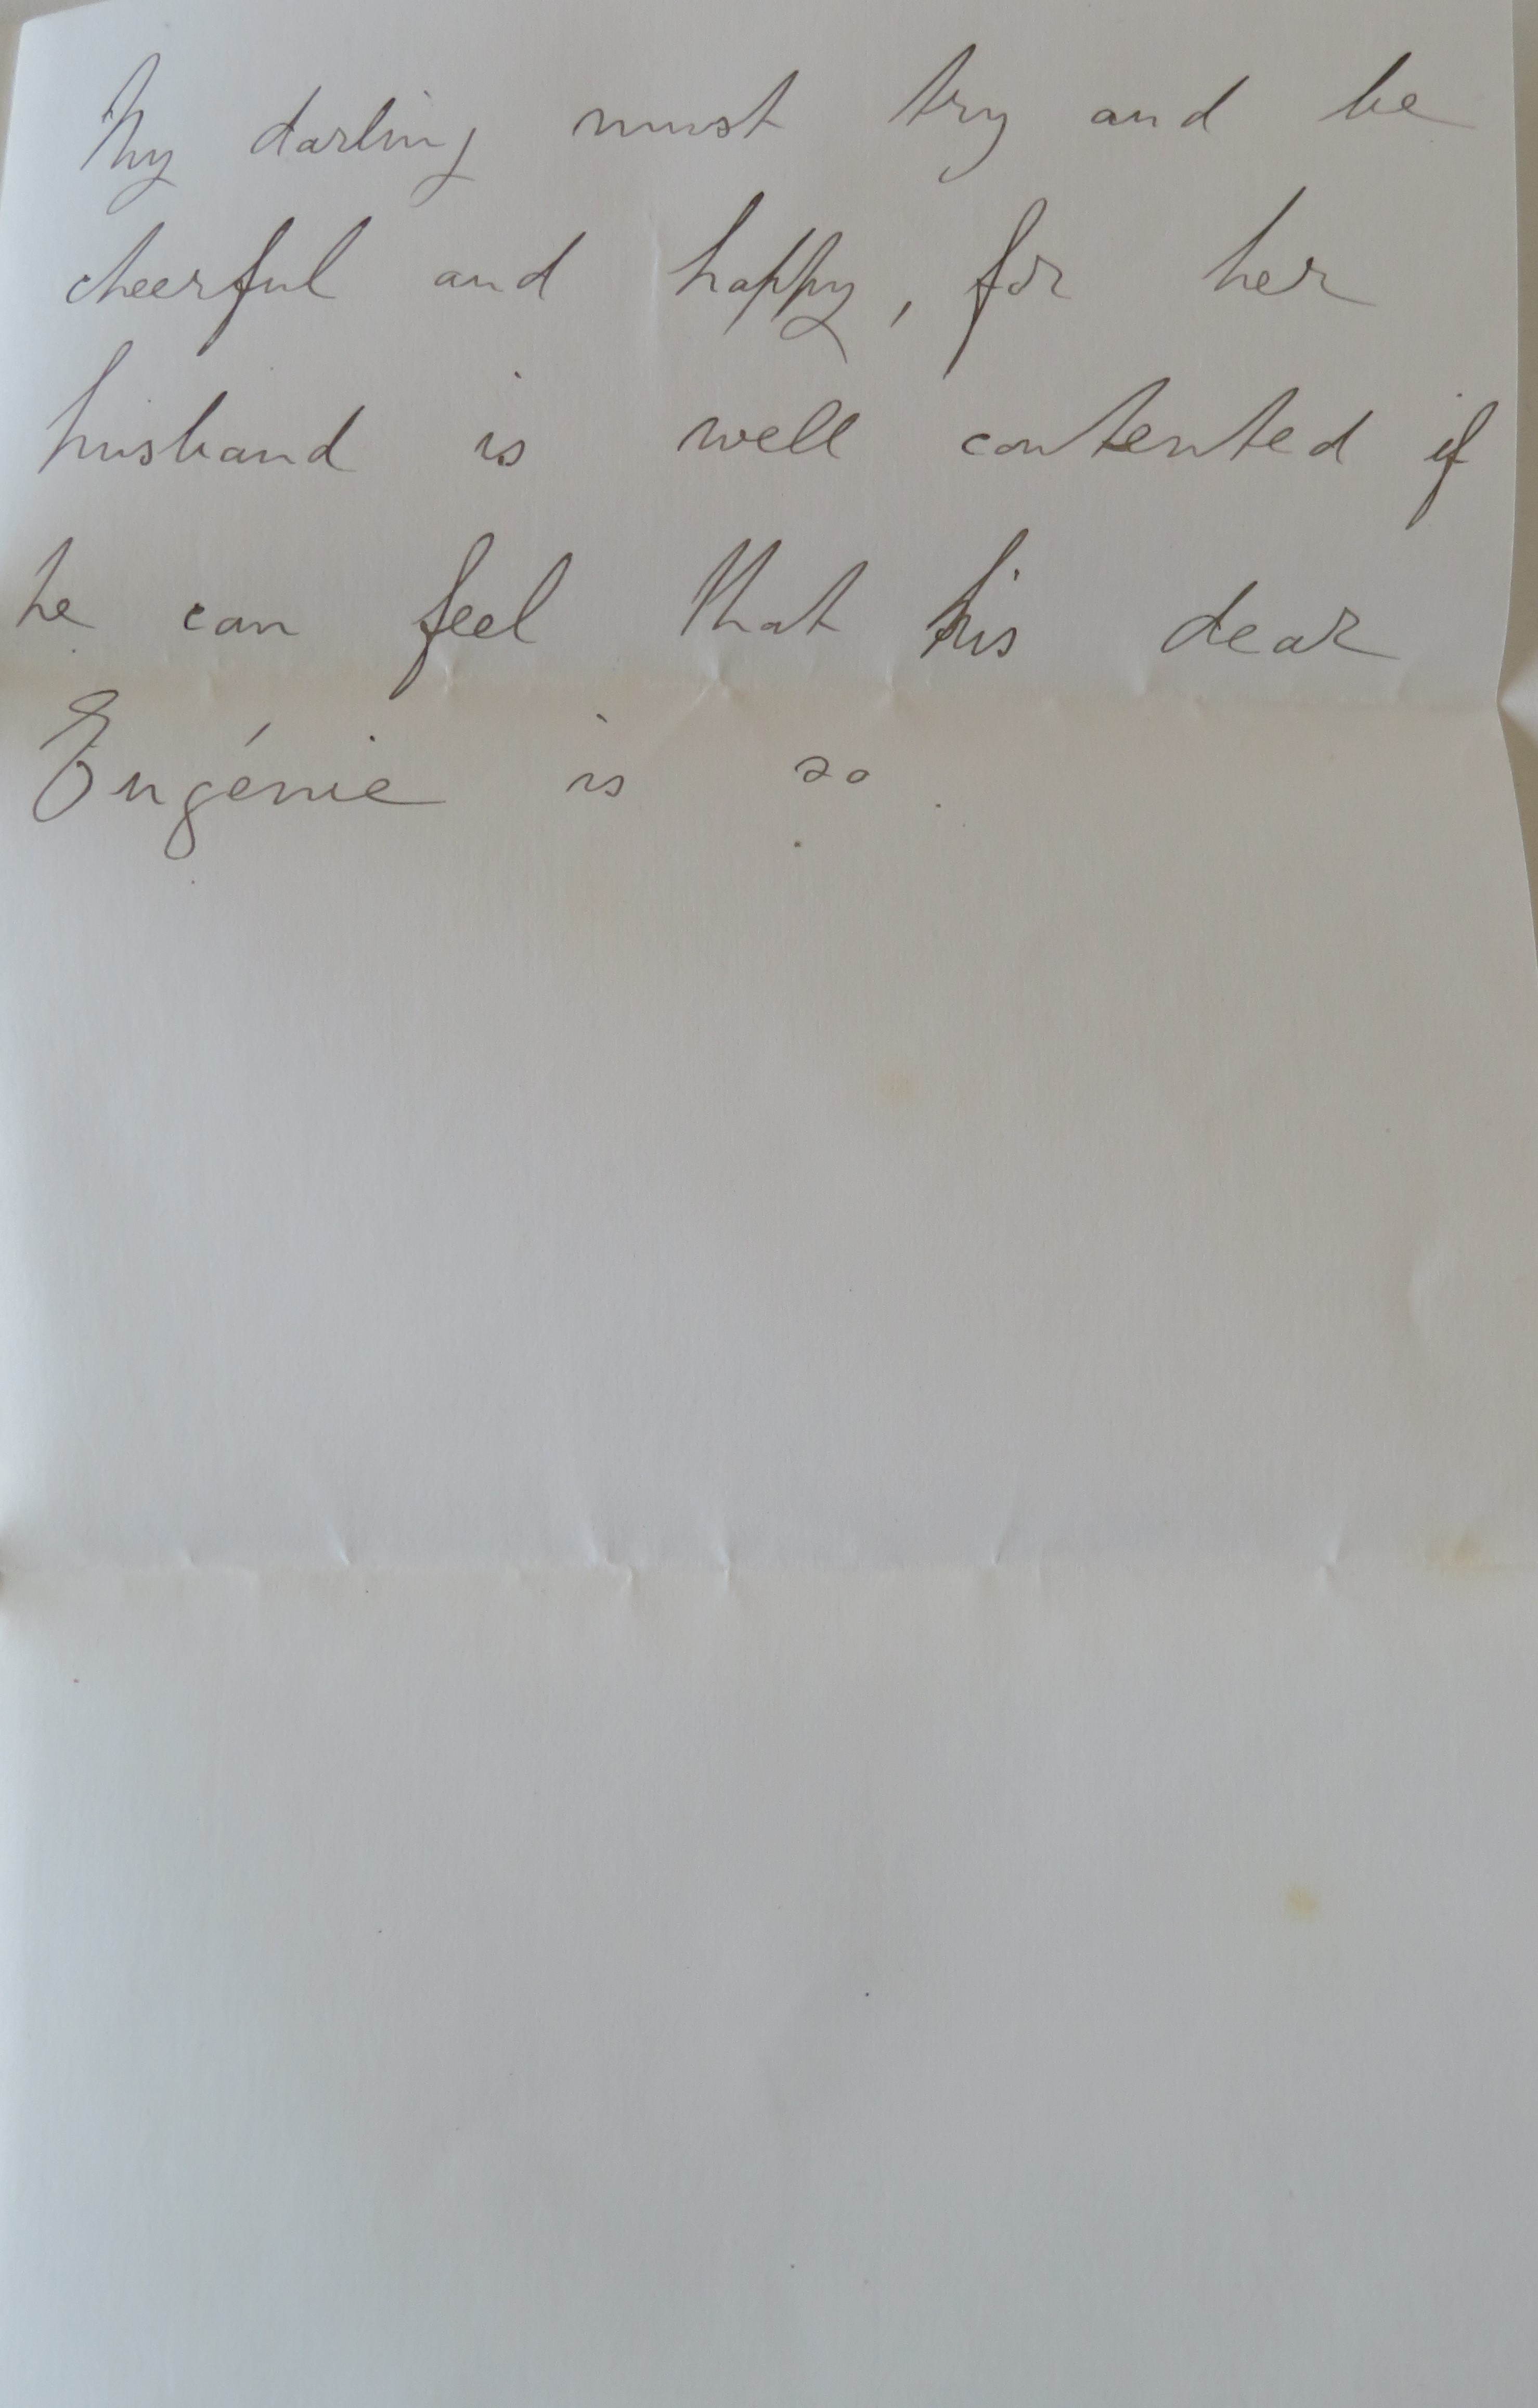 My darling must try and be
cheerful and happy, for her
husband is well contented if
he can feel that his dear
Eugénie is so.